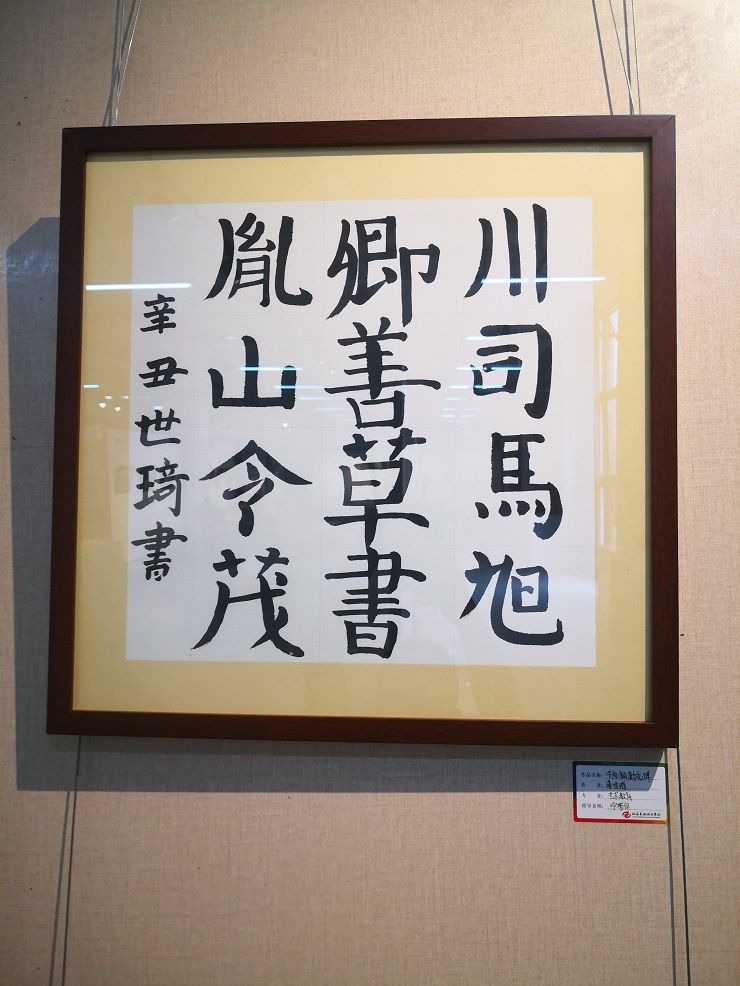 川司馬旭
卿善草書
胤山令茂
辛丑世琦書
作品名称：
作 者：
专 业：艺术教育
指导老师：